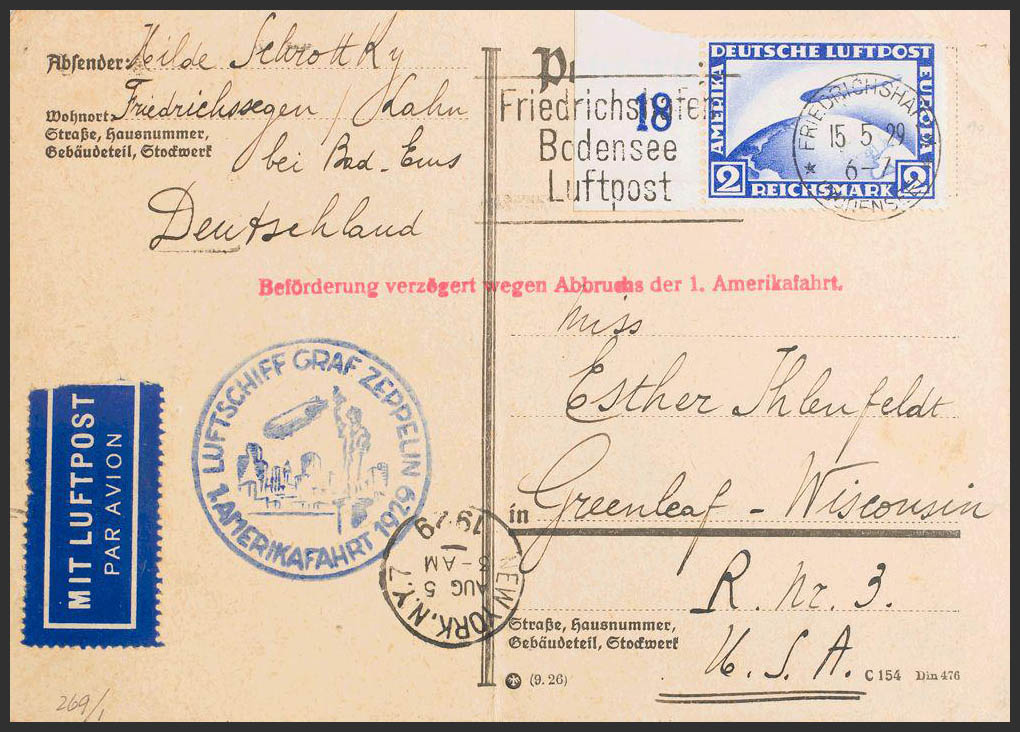 Absender: Hilde Schrottky
Wohnort: Friedrichssegen / Lahn
Straße, Hausnummer,
Gebäudeteil, Stockwerk
bei Bad-Ems
Deutschland
Friedrichshafen
Bodensee
Luftpost
18
DEUTSCHE LUFTPOST
AMERIKA
EUROPA
2 REICHSMARK 2
FRIEDRICHSHAFEN
15 5 29
6-7
BODENSEE
Beförderung verzögert wegen Abbruchs der 1. Amerikafahrt.
Miss
Esther Ihlenfeldt
in Greenleaf - Wisconsin
R. Nr. 3.
Straße, Hausnummer,
Gebäudeteil, Stockwerk
U. S. A.
C 154 Din 476
(9. 26)
LUFTSCHIFF GRAF ZEPPELIN
1. AMERIKAFAHRT 1929
MIT LUFTPOST
PAR AVION
NEW YORK, N.Y. 7
AUG 5
3-AM
1929
269/1